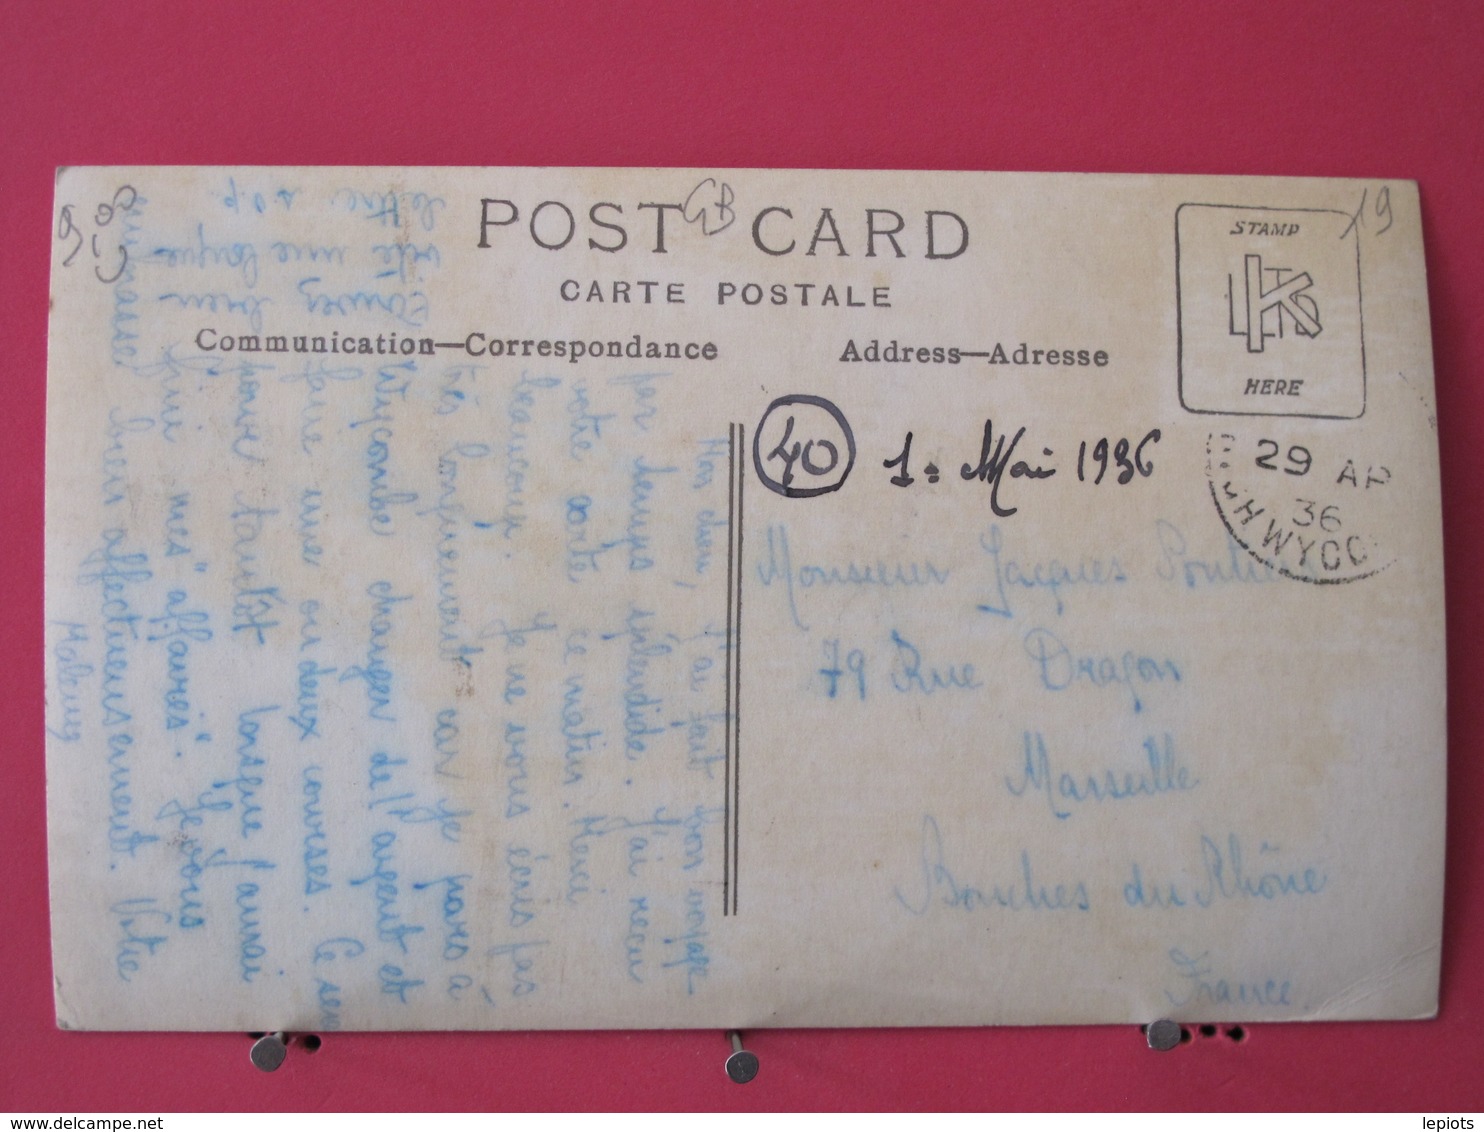 POST CARD
GB
CARTE POSTALE
Communication—Correspondance
Address—Adresse
STAMP
HERE
19
40
1er Mai 1936
29 AP
36
H WYCO
Monsieur Jacques
79 Rue Dragon
Marseille
Bouches du Rhône
France.
Mon cher, j'ai fait bon voyage
par temps splendide. J'ai recu
votre carte ce matin. Merci
beaucoup. Je ne vous écris pas
très longuement car je pars à
Wycombe changer de l'argent et
faire une ou deux courses. Ce sera
pour tantôt lorsque j'aurai
fini mes "affaires". Je vous
embrasse bien affectueusement. Votre
Ecrivez bien
vite une longue
lettre s.v.p.
lepiots
www.delcampe.net